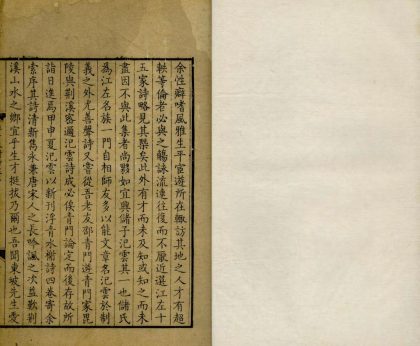 余性癖嗜風雅生平宦遊所在輒訪其地之人才有超
軼等倫者必與之觴詠流連往復而不厭近選江左十
五家詩略見其槩矣此外有才而未及知或知之而未
盡因不與此集者尚夥如宜興諸子汜雲其一也儲氏
為江左名族一門自相師友多以能文章名汜雲於制
義之外尤善聲詩又嘗從吾老友邵青門遊青門家毘
陵與荊溪密邇汜雲詩成必俟青門論定而後存故所
詣日進焉甲申夏汜雲以新刊浮青水榭詩四卷寄余
索序其詩清新雋永兼唐宋人之長吟諷之次益歎荊
溪山水之鄉宜乎生才挺拔乃爾也吾聞東坡先生愛